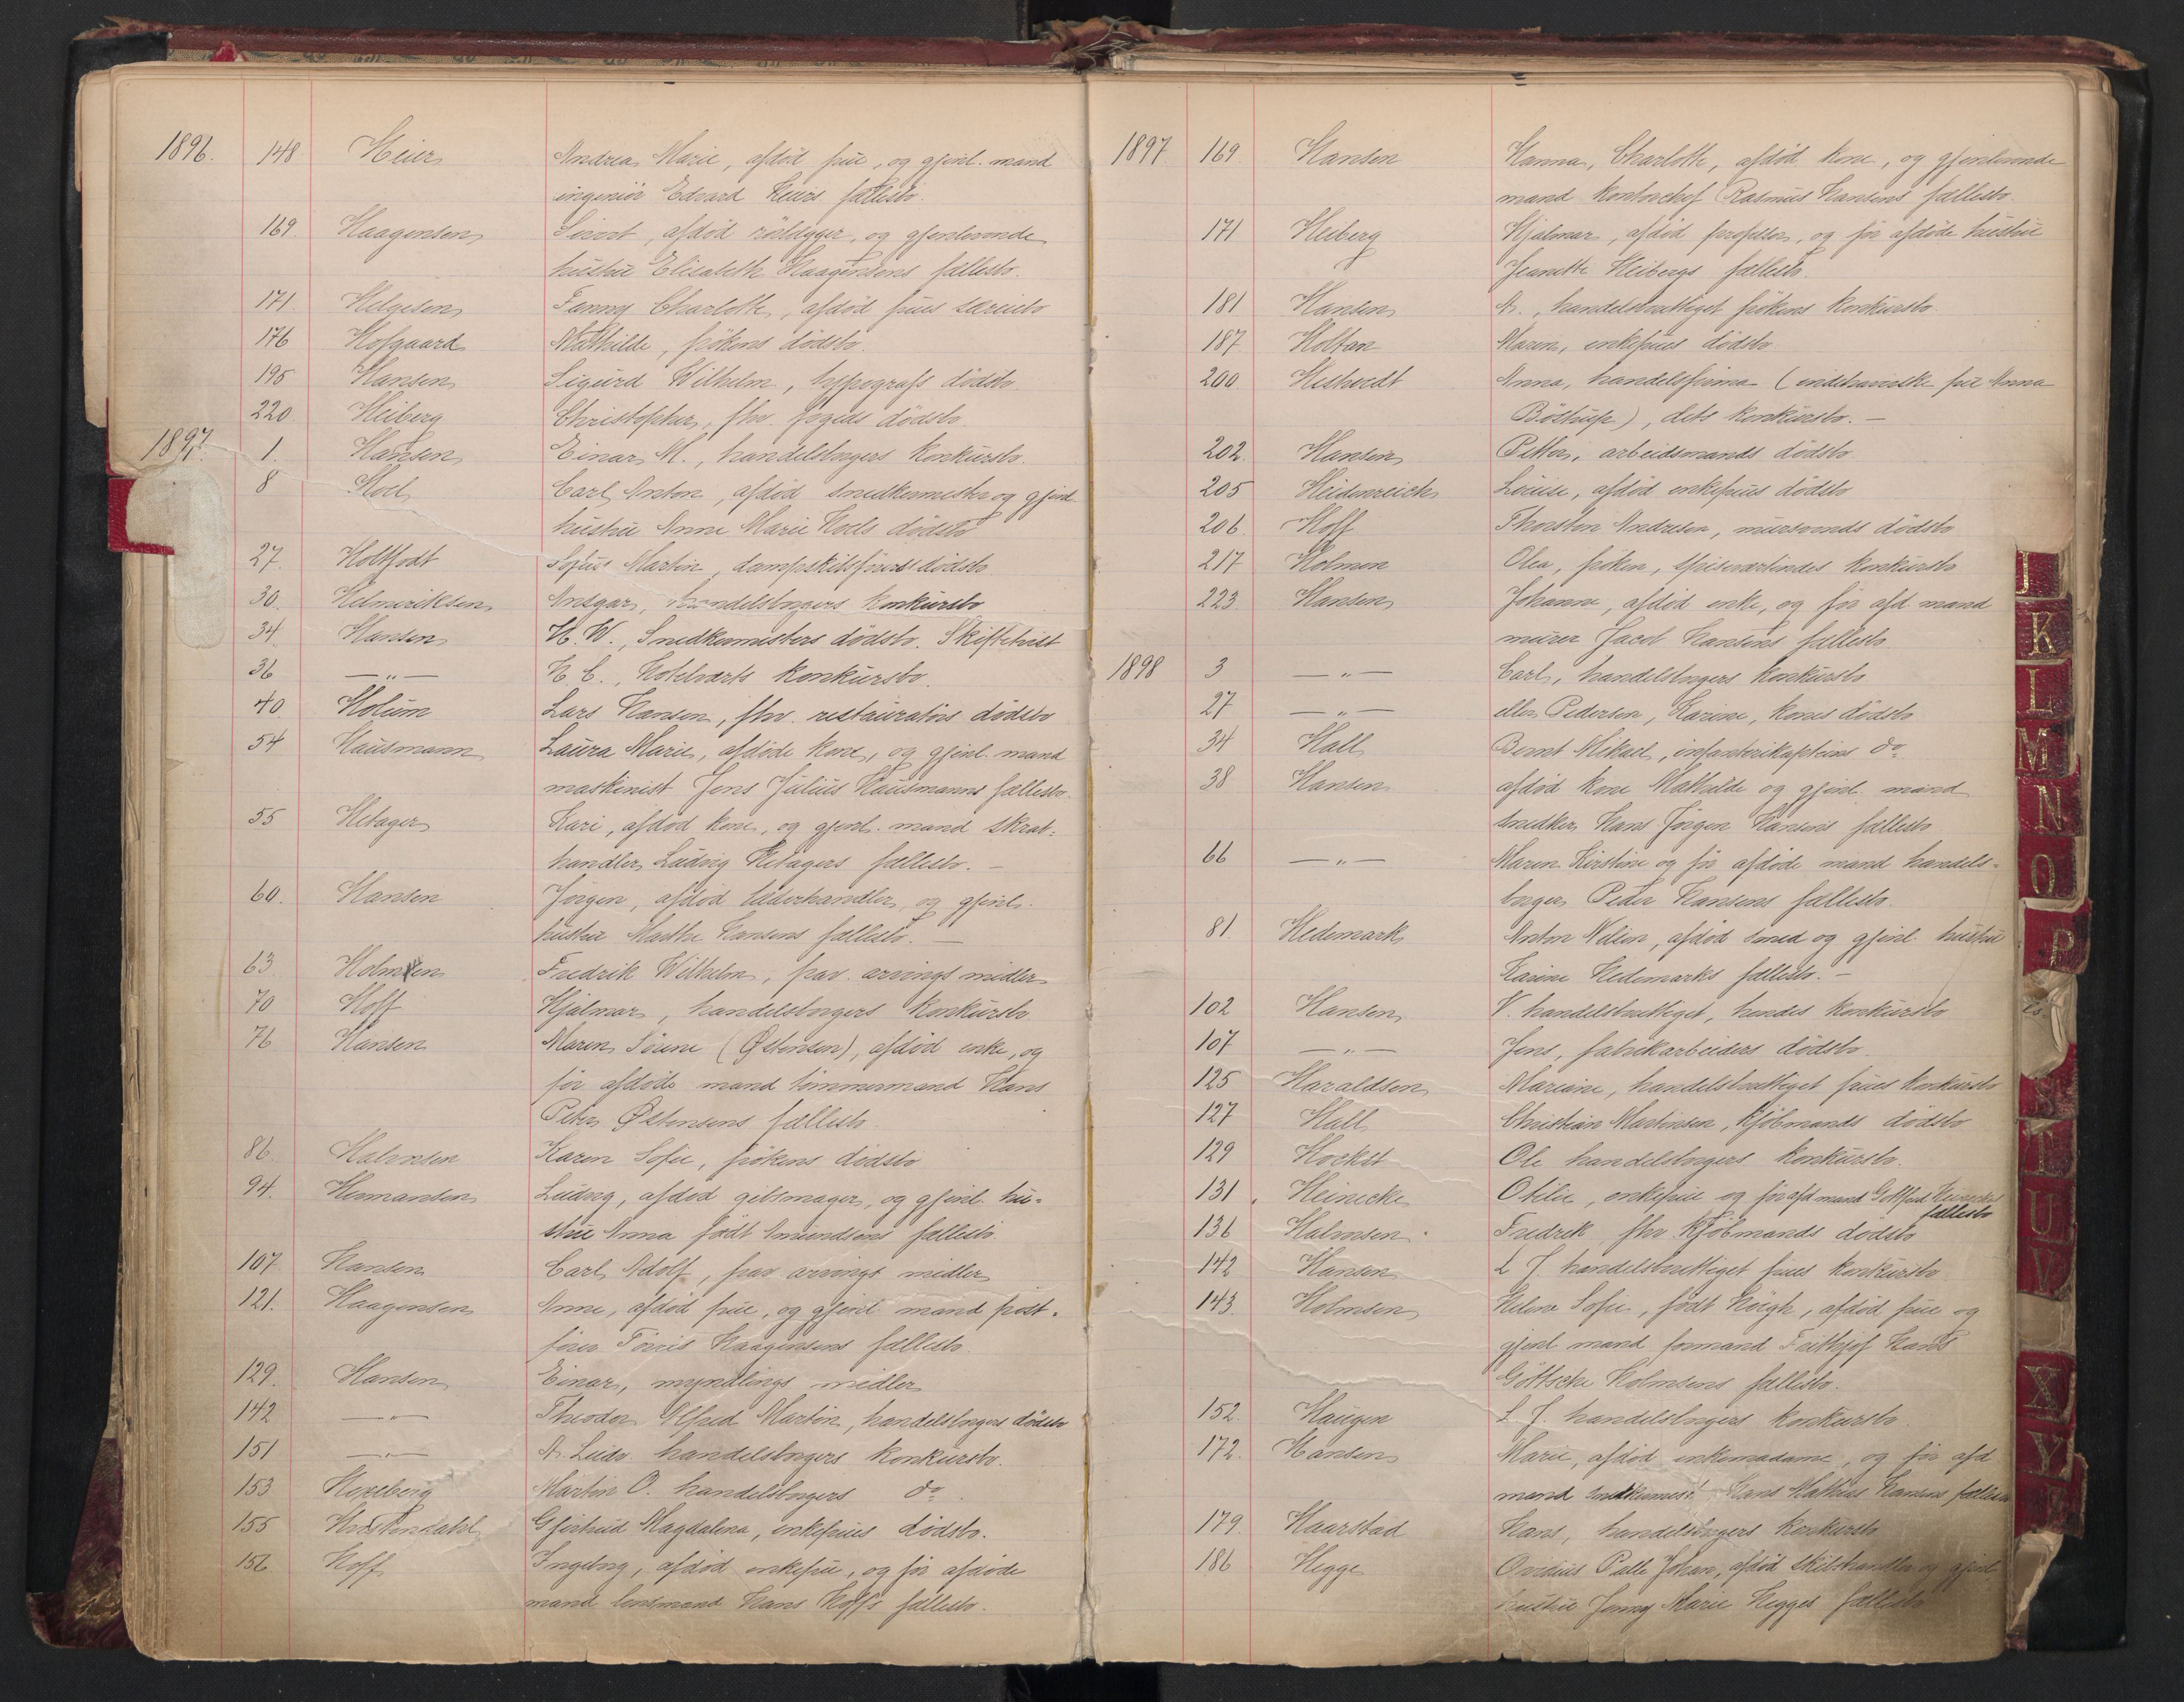 1896. 148 Heier Andrea Marie, afdød frue, og gjenl. mand
ingeniør Edvard Heiers fællesbo.
169. Haagensen Sivert, afdød rørlægger, og gjenlevende
hustru Elisabeth Haagensens fællesbo.
171. Helgesen Fanny Charlotte, afdød frues særeiebo
176 Hofgaard Mathilde, frøkens dødsbo.
195 Hansen Sigurd Wilhelm, typografs dødsbo
220 Heiberg Christopher, fhv. fogeds dødsbo
1897. 1. Hansen Einar M., handelsborgers konkursbo.
8 Hoel Carl Anton, afdød snedkermester og gjenl.
hustru Anne Marie Hoels dødsbo
27. Holtfodt Sofus Martin, dampskibsførers dødsbo
30. Helmeriksen Ansgar, handelsborgers konkursbo
34. Hansen H. W., Snedkermesters dødsbo. Skiftetvist
36 —„— H. C., Hotelværts konkursbo.
40. Holum Lars Hansen, fhv. restauratørs dødsbo
54 Hausmann Laura Marie, afdøde kone, og gjenl. mand
maskinist Jens Julius Hausmanns fællesbo.
55 Hetager Kari, afdød kone, og gjenl. mand skrab-
handler Ludvig Hetagers fællesbo. —
60. Hansen Jørgen, afdød læderhandler, og gjenl.
hustru Marthe Hansens fællesbo. —
63 Holmsen Fredrik Wilhelm, frav. arvings midler
70 Hoff Hjalmar, handelsborgers konkursbo.
76 Hansen Maren Sørine (Østensen), afdød enke, og
før afdøde mand tømmermand Hans
Peter Østensens fællesbo.
86. Halvorsen Karen Sofie, frøkens dødsbo
94. Hermansen Ludvig, afdød gibsmager, og gjenl. hu-
stru Anna født Amundsens fællesbo.
107. Hansen Carl Adolf, frav arvings midler
121. Haagensen Anne, afdød frue, og gjenl mand post-
fører Tørris Haagensens fællesbo.
129. Hansen Einar, myndlings midler
142 —„— Theodor Alfred Martin, handelsborgers dødsbo
151 —„— A. Ludv. handelsborgers konkursbo.
153 Herseberg Martin O. handelsborgers do
155 Gjertrud Magdalena, enkefrues dødsbo.
156 Hoff Ingeborg, afdød enkefrue, og før afdøde
mand lensmand Hans Hoffs fællesbo.
1897 169. Hansen Hanna, Charlotte, afdød kone, og gjenlevende
mand kontorchef Rasmus Hansens fællesbo.
171 Heiberg Hjalmar, afdød professor, og før afdøde hustru
Jeanette Heibergs fællesbo.
181 Hansen A., handelsberettiget frøkens konkursbo.
187. Holtan Maren, enkefrues dødsbo
200 Anna, handelsfirma (indehaverske frue Anna
Bøstrup), dets konkursbo. —
202. Hansen Petter, arbeidsmands dødsbo
205 Heidenreich Louise, afdød enkefrues dødsbo
206. Hoff Thorsten Andresen, mursvends dødsbo
217 Holmen Olea, frøken, spiseværtindes konkursbo
223. Hansen Johanne, afdød enke, og før afd mand
murer Jacob Hansens fællesbo
1898 3 —„— Carl, handelsborgers konkursbo
27 —„— eller Pedersen, Karine, kones dødsbo
34 Hall Bernt Mikael, infanterikapteins do
38 Hansen afdød kone Mathilde og gjenl. mand
snedker Hans Jørgen Hansens fællesbo
66 —„— Maren Kirstine og før afdøde mand handels-
borger Peder Hansens fællesbo.
81 Hedemark Anton Nilsen, afdød smed og gjenl. hustru
Karine Hedemarks fællesbo. —
102 Hansen V. handelsberettiget, hendes konkursbo
107 —„— Jens, fabrikarbeiders dødsbo
125 Haraldsen Mariane, handelsberettiget frues konkursbo
127 Hall Christian Martinsen, kjøbmands dødsbo
129 Hocket Ole handelsborgers konkursbo.
131 Heinecke Otilie, enkefrue og før afd mand Gottfried Heineckes
fællesbo
136 Halvorsen Fredrik fhv kjøbmands dødsbo
142 Hansen L J. handelsberettiget frues konkursbo
143. Holmsen Helene Sofie, født afdød frue og
gjenl mand formand Frithjof Hans
Göttsche Holmsens fællesbo.
152. Haugen L J. handelsborgers konkursbo.
172. Hansen Marie, afdød enkemadame, og før afd
mand snedkermest. Hans Mathias Hansens fællesbo
179. Haarstad Hans, handelsborgers konkursbo
186 Hegge Palle Johan, afdød skibshandler og gjenl
hustru Jenny Marie Hegges fællesbo
J
K
L
M
N
O
P
S
T
U
V
X
Y